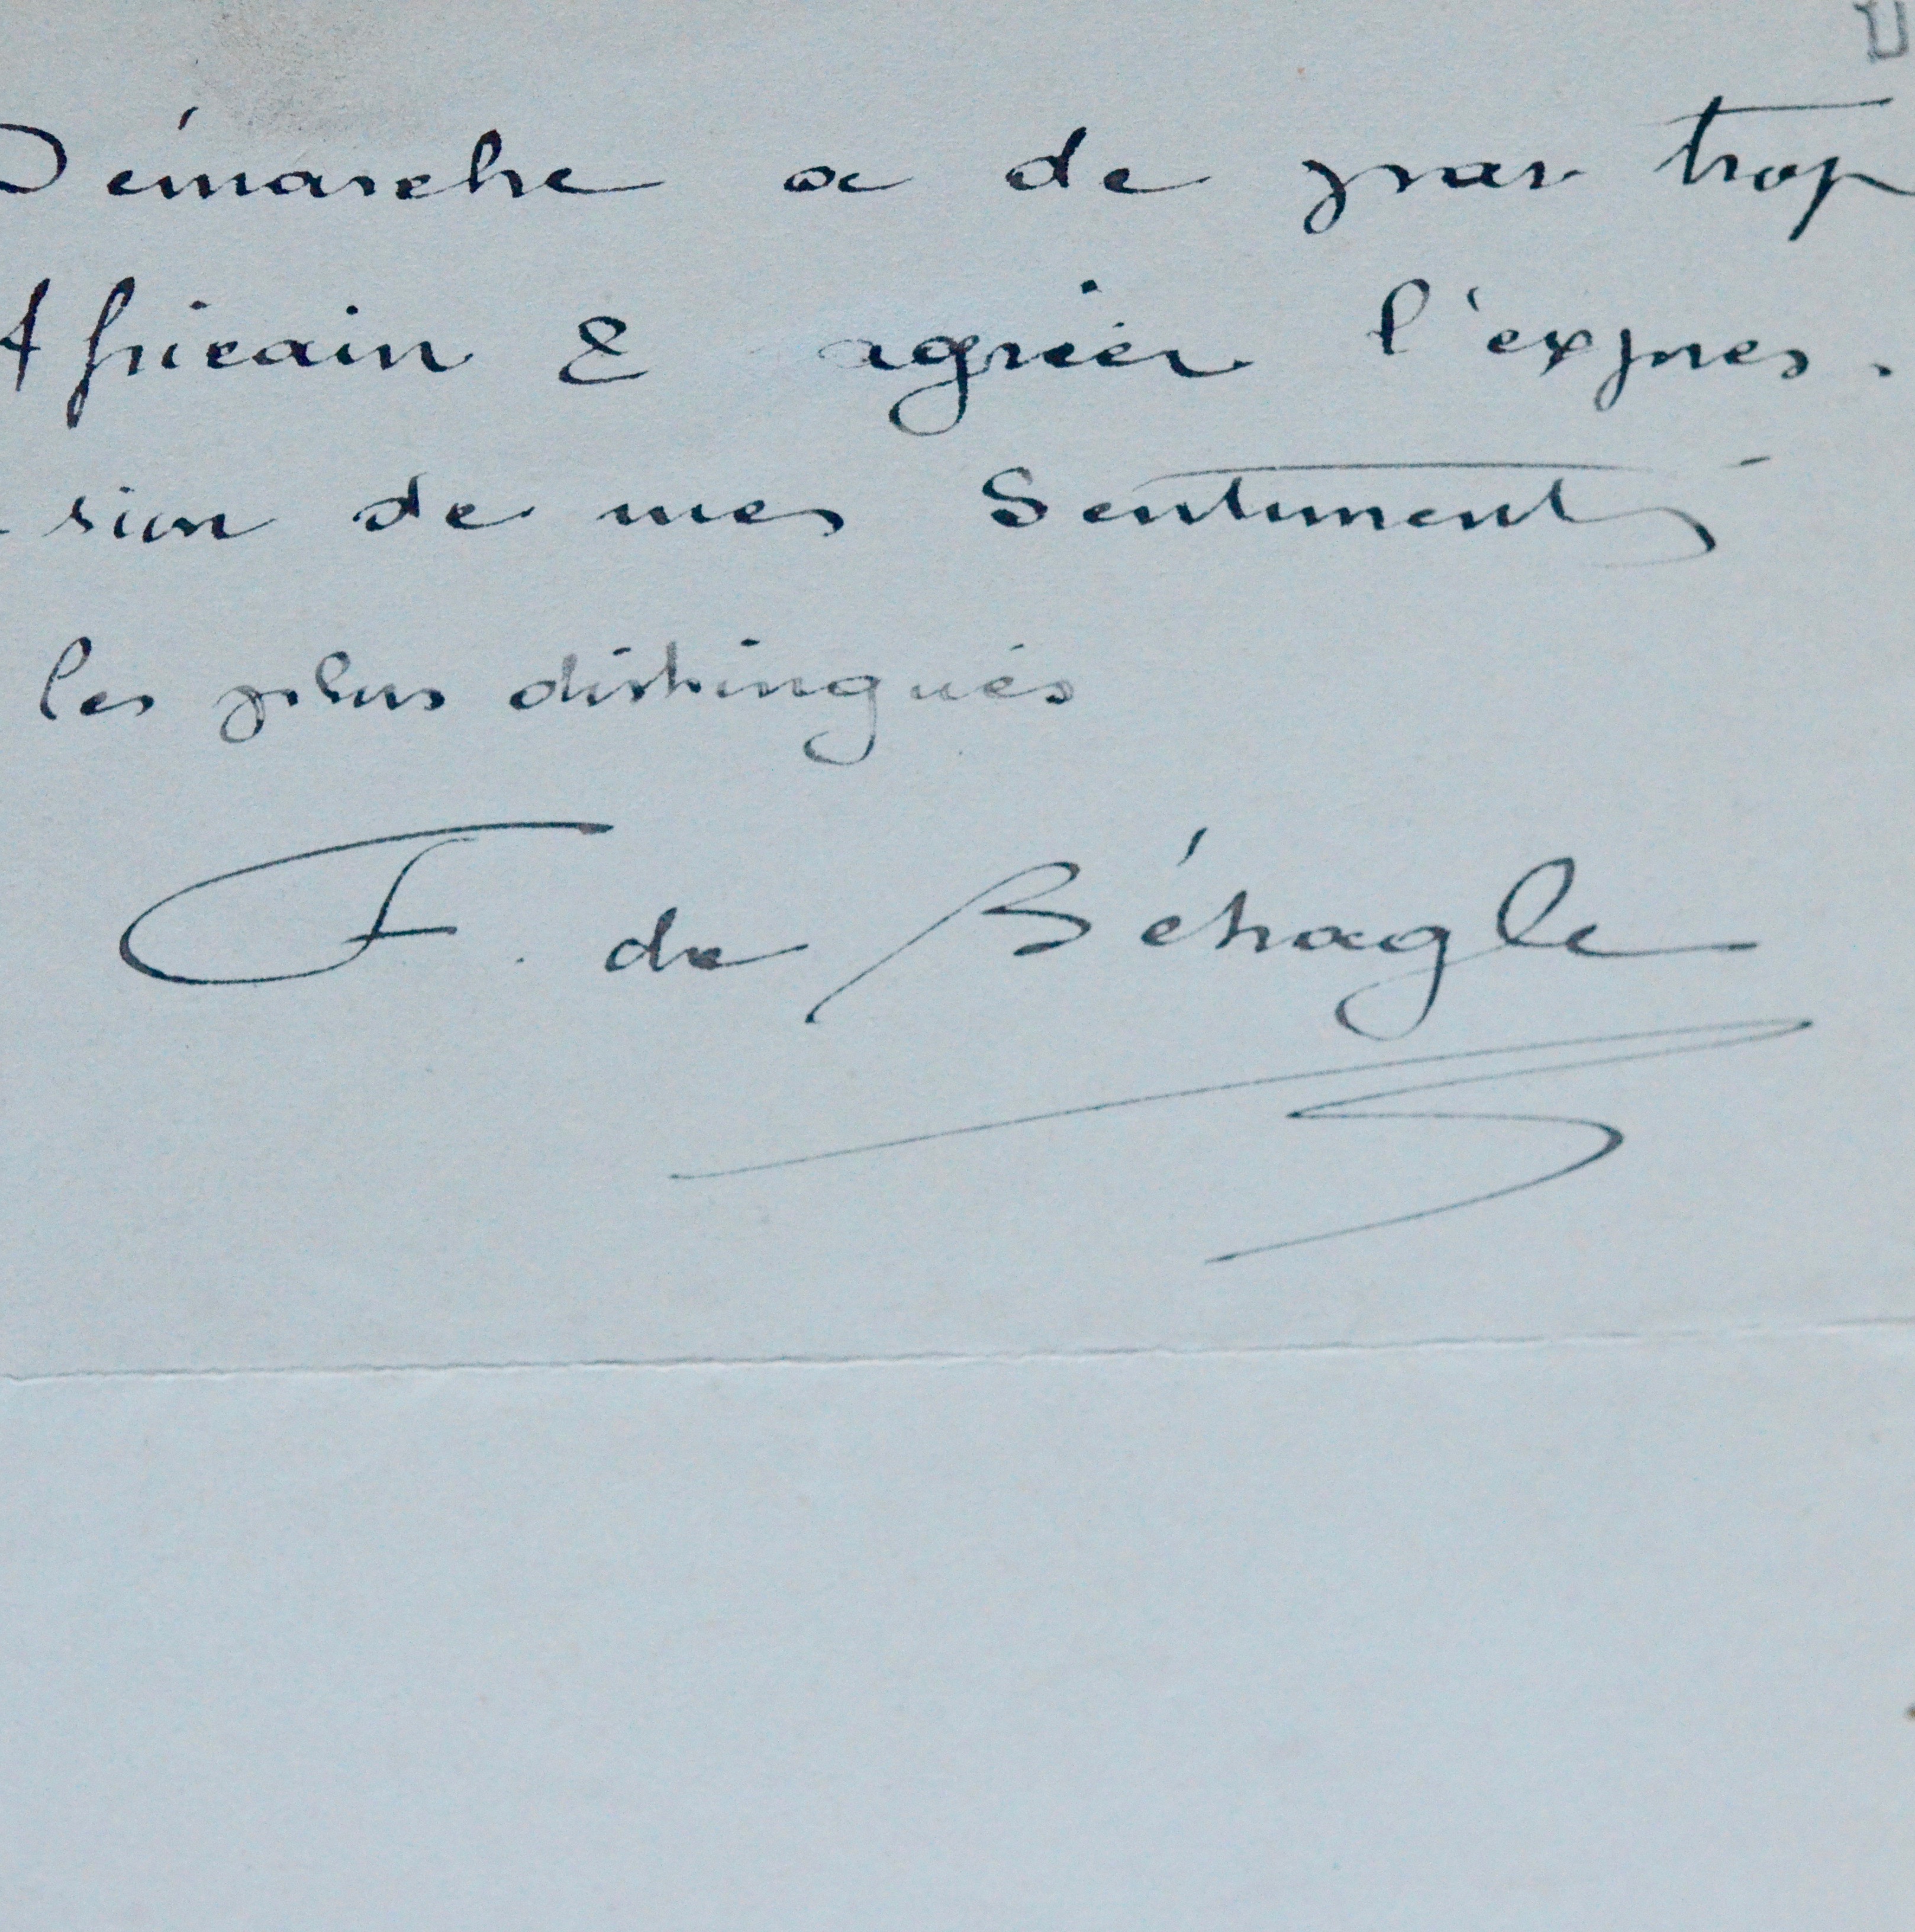 Démarche a de par trop
Africain & agréer l'expres-
-sion de mes Sentiments
les plus distingués
F. de Béhagle